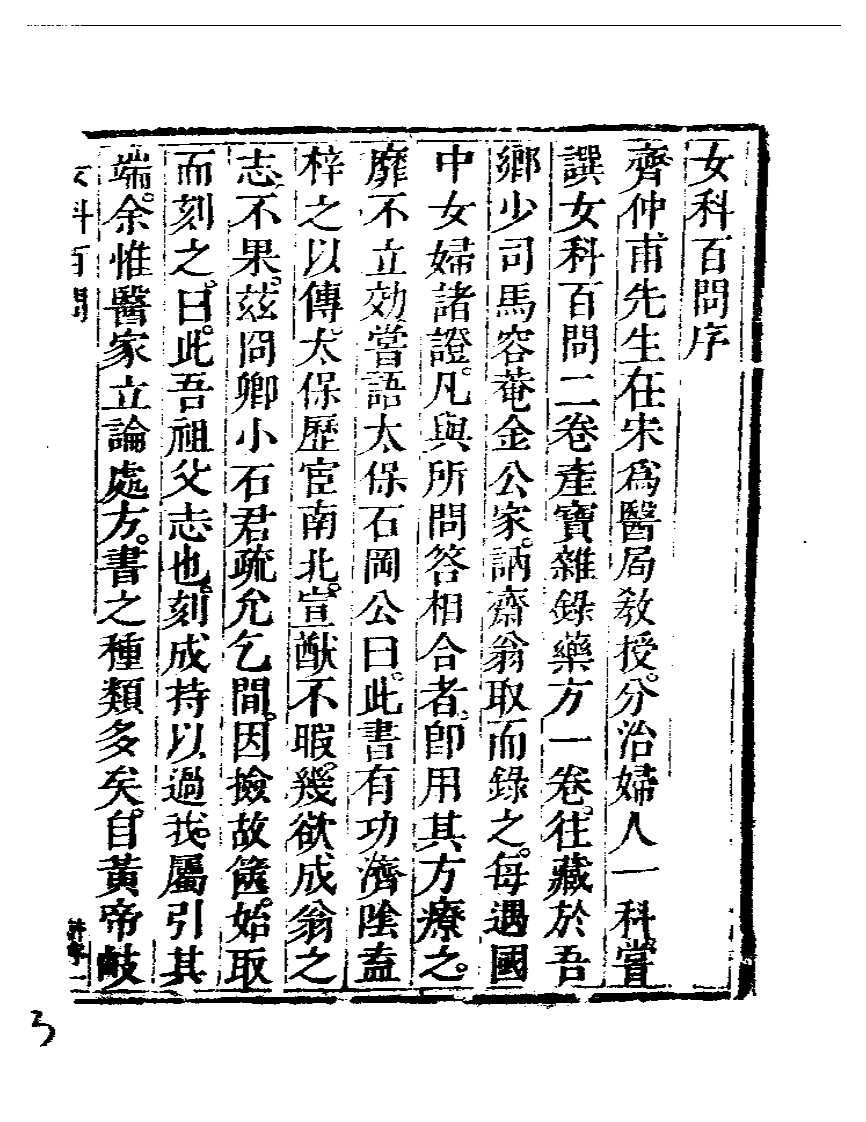 女科百問序
齊仲甫先生在宋爲醫局教授。分治婦人一科。嘗
譔女科百問二卷產寶雜錄藥方一卷。往藏於吾
鄉少司馬容菴金公家。訥齋翁取而錄之。每遇國
中女婦諸證。凡與所問答相合者。卽用其方療之。
靡不立効嘗語太保石岡公曰。此書有功濟陰盍
梓之以傳。太保歷宦南北。宣猷不暇。幾欲成翁之
志。不果。茲冏卿小石君疏允乞間。因撿故篋。始取
而刻之。曰。此吾祖父志也。刻成持以過我。屬引其
端。余惟醫家立論處方。書之種類多矣。自黃帝歧
女科百問